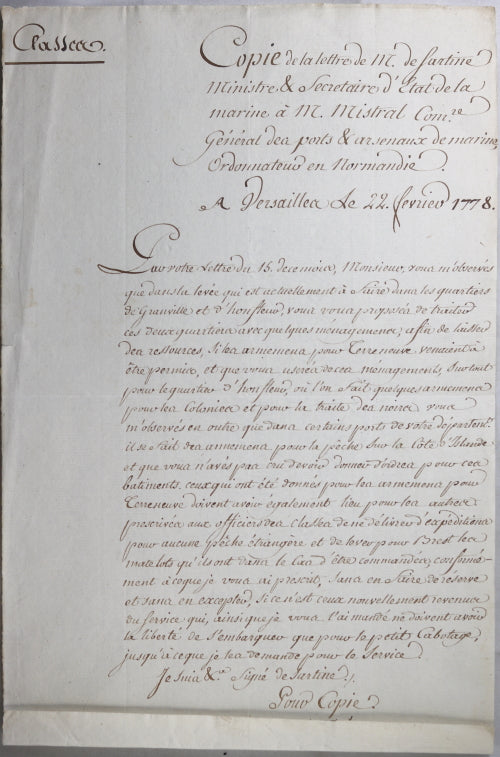 Classes.
Copie de la lettre de M. de Sartine
Ministre & Secretaire d'Etat de la
marine à M. Mistral Com.re
Général des ports & arsenaux de marine,
Ordonnateur en Normandie.
A Versailles Le 22. fevrier 1778.
Par votre Lettre du 15. de ce mois, Monsieur, vous m'observés
que dans la levée qui est actuellement à faire dans les quartiers
de Granville et d'honfleur, vous vous proposés de traiter
ces deux quartiers avec quelques menagemens, afin de laisser
des ressources, Si les armemens pour Terreneuve venoient à
être permis, et que vous userés de ces menagements, Surtout
pour le quartier d'honfleur, où l'on fait quelques armemens
pour les Colonies et pour la traite des noirs. vous
m'observés en outre que dans certains ports de votre départem.t
il se fait des armemens pour la pêche Sur la Côte d'Islande
et que vous n'avés pas cru devoir donner d'ordres pour ces
batiments. ceux qui ont été donnés pour les armemens pour
Terreneuve doivent avoir également lieu pour les autres
prescrivés aux officiers des classes de ne délivrer d'expéditions
pour aucune pêche étrangère et de lever pour Brest les
matelots qu'ils ont dans le Cas d'être commandés, conformé-
ment à ce que je vous ai prescrit, Sans en faire de réserve
et sans en excepter, Si ce n'est ceux nouvellement revenus
du Service qui, ainsi que je vous l'ai mandé ne doivent avoir
la liberté de S'embarquer que pour le petit Cabotage,
jusqu'à ce que je les demande pour le Service.
Je Suis &.a Signé de Sartine./.
Pour Copie